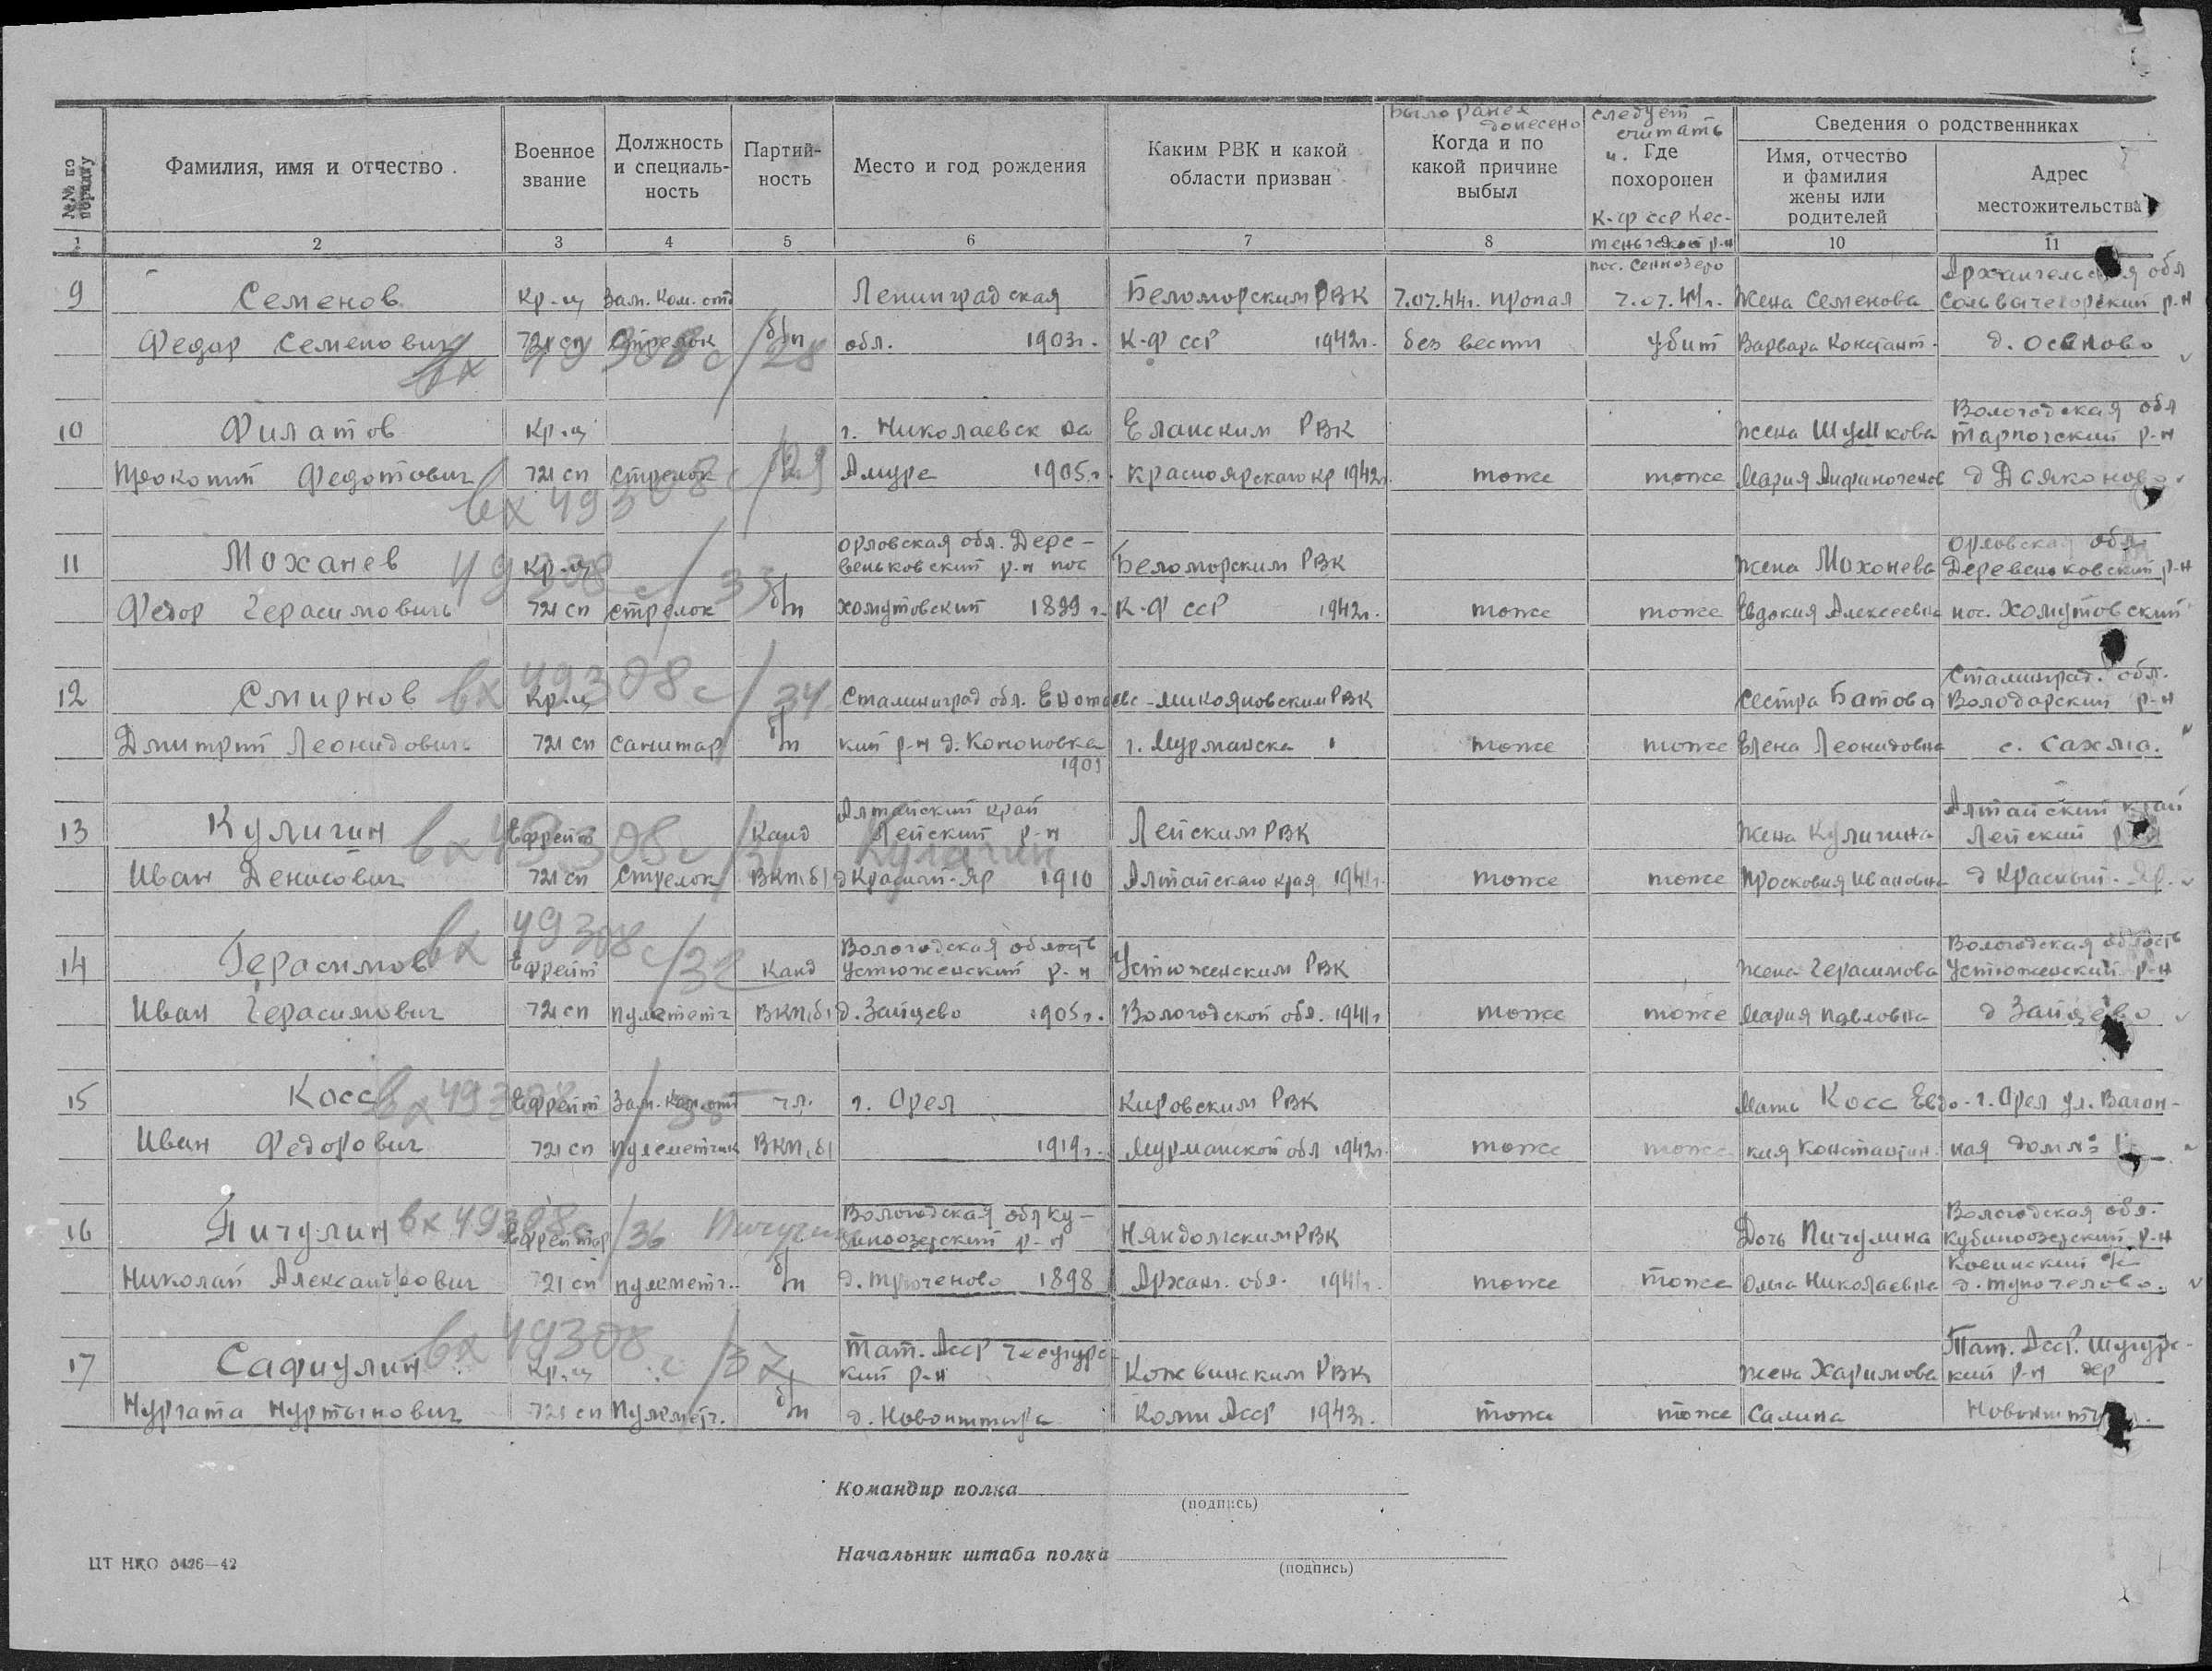 №№ по порядку
Фамилия, имя и отчество
Военное звание
Должность и специальность
Партийность
Место и год рождения
Каким РВК и какой области призван
Было ранее донесено
Когда и по какой причине выбыл
следует считать
и. Где похоронен
К-Ф ССР Кестеньгский р-н
пос. Сеннозеро
Сведения о родственниках
Имя, отчество и фамилия жены или родителей
Адрес местожительства
1 2 3 4 5 6 7 8 10 11
9 Семенов Кр-ц Зам. Ком. отд Ленинградская Беломорским РВК 7.07.44г. пропал 7.07.44г. Жена Семенова Архангельская обл Сольвычегодский р-н
Федор Семенович 721 сп Стрелок б/п обл. 1903г. К-Ф ССР 1942г. без вести убит Варвара Констант. д. Осеново
вх 49308с/28
10 Филатов Кр-ц г. Николаевск на Еланским РВК Жена Шушкова Вологодская обл Тарногский р-н
Прокопий Федотович 721 сп стрелок Амуре 1905г. Красноярского кр 1942г. тоже тоже Мария д Дьяконово
вх 49308с/29
11 Моханев Кр-ц Орловская обл. Дере- Беломорским РВК Жена Мохонева Орловская обл.
веньковский р-н пос Деревеньковский р-н
Федор Герасимович 721 сп стрелок б/п Хомутовский 1899г. К-Ф ССР 1942г. тоже тоже Евдокия Алексеевна пос. Хомутовский
49308с/33
12 Смирнов Кр-ц Сталинград обл. Енотаевс- Микояновским РВК Сестра Батова Сталинград. обл. Володарский р-н
Дмитрий Леонидович 721 сп санитар б/п кий р-н д. Кононовка г. Мурманска тоже тоже Елена Леонидовна с. Сахма.
вх 49308с/34
13 Куличин Ефрейт Канд Алтайский край Лейский р-н Лейским РВК Жена Куличина Алтайский край Лейский
Иван Денисович 721 сп Стрелок ВКП(б) д Красный-Яр 1910 Алтайского края 1941г. тоже тоже Просковия Ивановна д Красный-Яр.
вх 49308с/31
14 Герасимов Ефрейт Канд Вологодская область Устюженский р-н Устюженским РВК Жена Герасимова Вологодская область Устюженский р-н
Иван Герасимович 721 сп пулеметч ВКП(б) д. Зайцево 1905г. Вологодской обл. 1941г тоже тоже Мария Павловна д Зайцево
вх 49308с/32
15 Косс Ефрейт Зам. Ком. отд чл. г. Орел Кировским РВК Мать Косс Евдо- г. Орел ул. Вагон-
Иван Федорович 721 сп пулеметчик ВКП(б) 1919г. Мурманской обл 1942г. тоже тоже кия Константин. ная дом №
вх 49308с/35
16 Пичулин Ефрейтор Вологодская обл Ку- Няндомским РВК Дочь Пичулина Вологодская обл.
биноозерский р-н Кубиноозерский р-н
Николай Александрович 721 сп пулеметч. б/п 1898 Арханг. обл. 1941г. тоже тоже Ольга Николаевна
вх 49308с/36
17 Сафиулин Кр-ц Тат. Асср Кожвинским РВК Жена Харимова Тат. Асср. Шугурс-
кий р-н кий р-н дер
Нургата Нуртынович 721 сп Пулеметч. б/п Коми Асср 1943г. тоже тоже Салина
вх 49308с/37
Командир полка
(подпись)
Начальник штаба полка
(подпись)
ЦТ НКО 0426—42